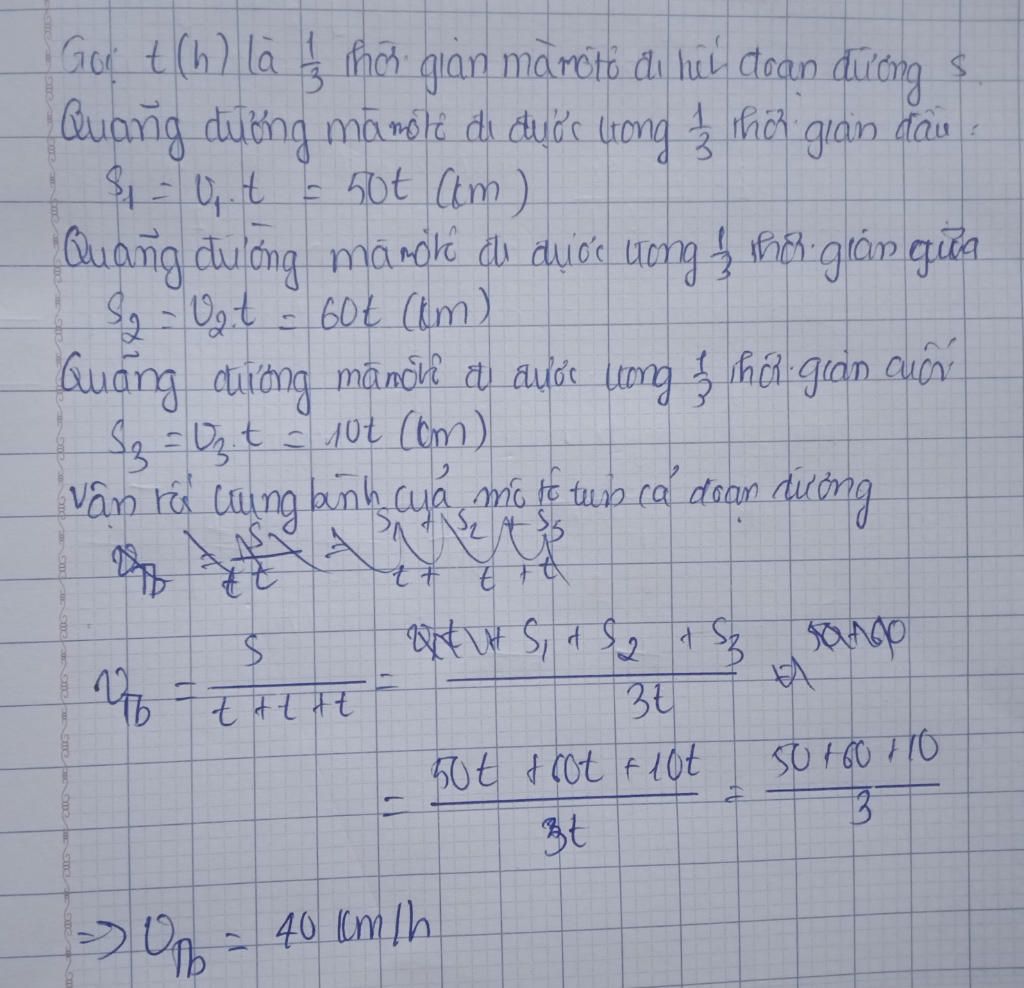 Gọi t(h) là 1/3 thời gian mà môtô đi hết đoạn đường s.
Quãng đường mà môtô đi được trong 1/3 thời gian đầu:
S₁ = v₁.t = 50t (km)
Quãng đường mà môtô đi được trong 1/3 thời gian giữa
S₂ = v₂.t = 60t (km)
Quãng đường mà môtô đi được trong 1/3 thời gian cuối
S₃ = v₃.t = 10t (km)
vận tốc trung bình của mô tô trên cả đoạn đường
v_Tb = S/(t+t+t) = (S₁ + S₂ + S₃)/3t
= (50t + 60t + 10t)/3t = (50+60+10)/3
=> v_Tb = 40 km/h